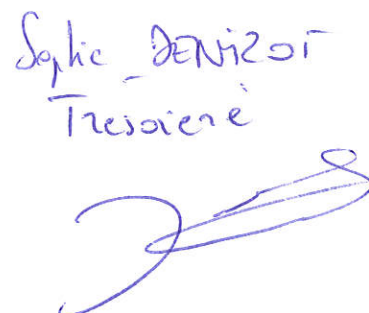 Sophie DENIZOT
Trésorière